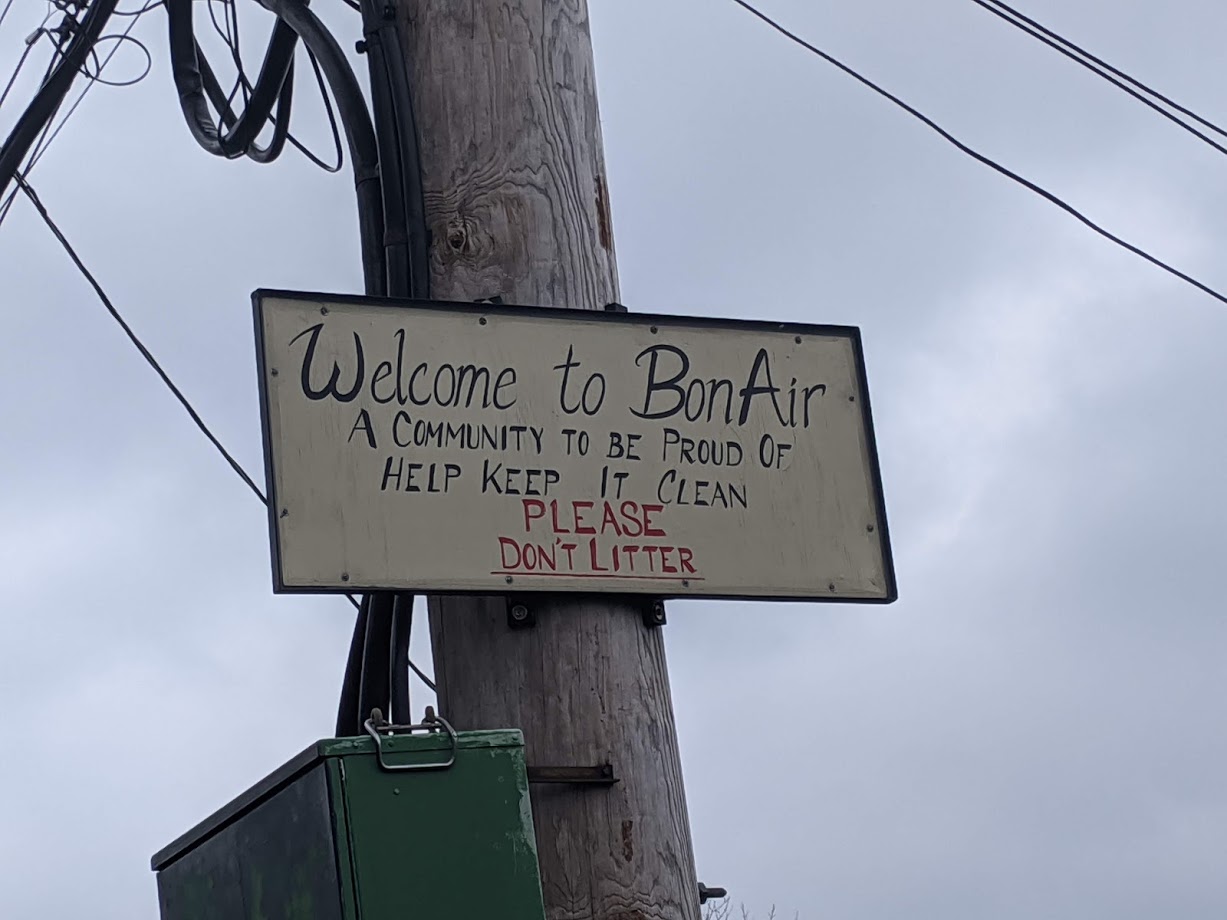 Welcome to BonAir
A COMMUNITY TO BE PROUD OF
HELP KEEP IT CLEAN
PLEASE
DON'T LITTER